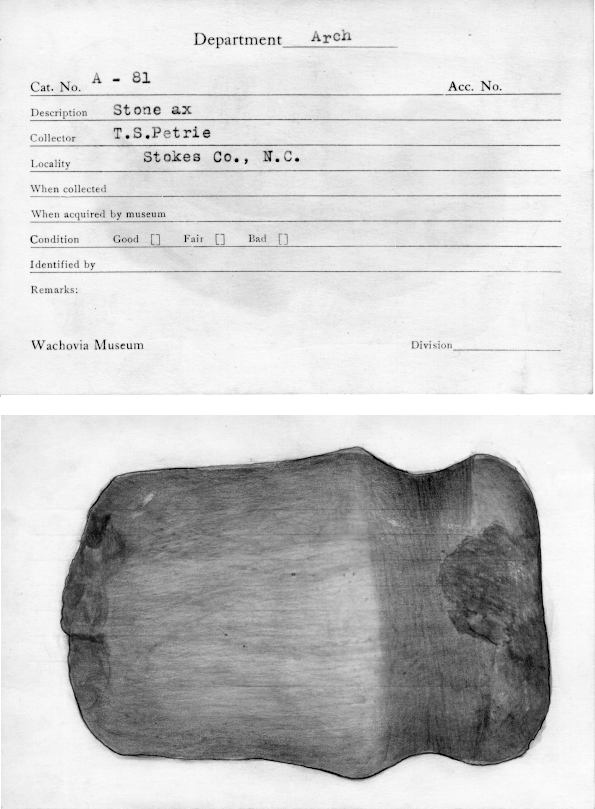 Department Arch
Cat. No. A - 81 Acc. No.
Description Stone ax
Collector T.S.Petrie
Locality Stokes Co., N.C.
When collected
When acquired by museum
Condition Good [] Fair [] Bad []
Identified by
Remarks:
Wachovia Museum Division